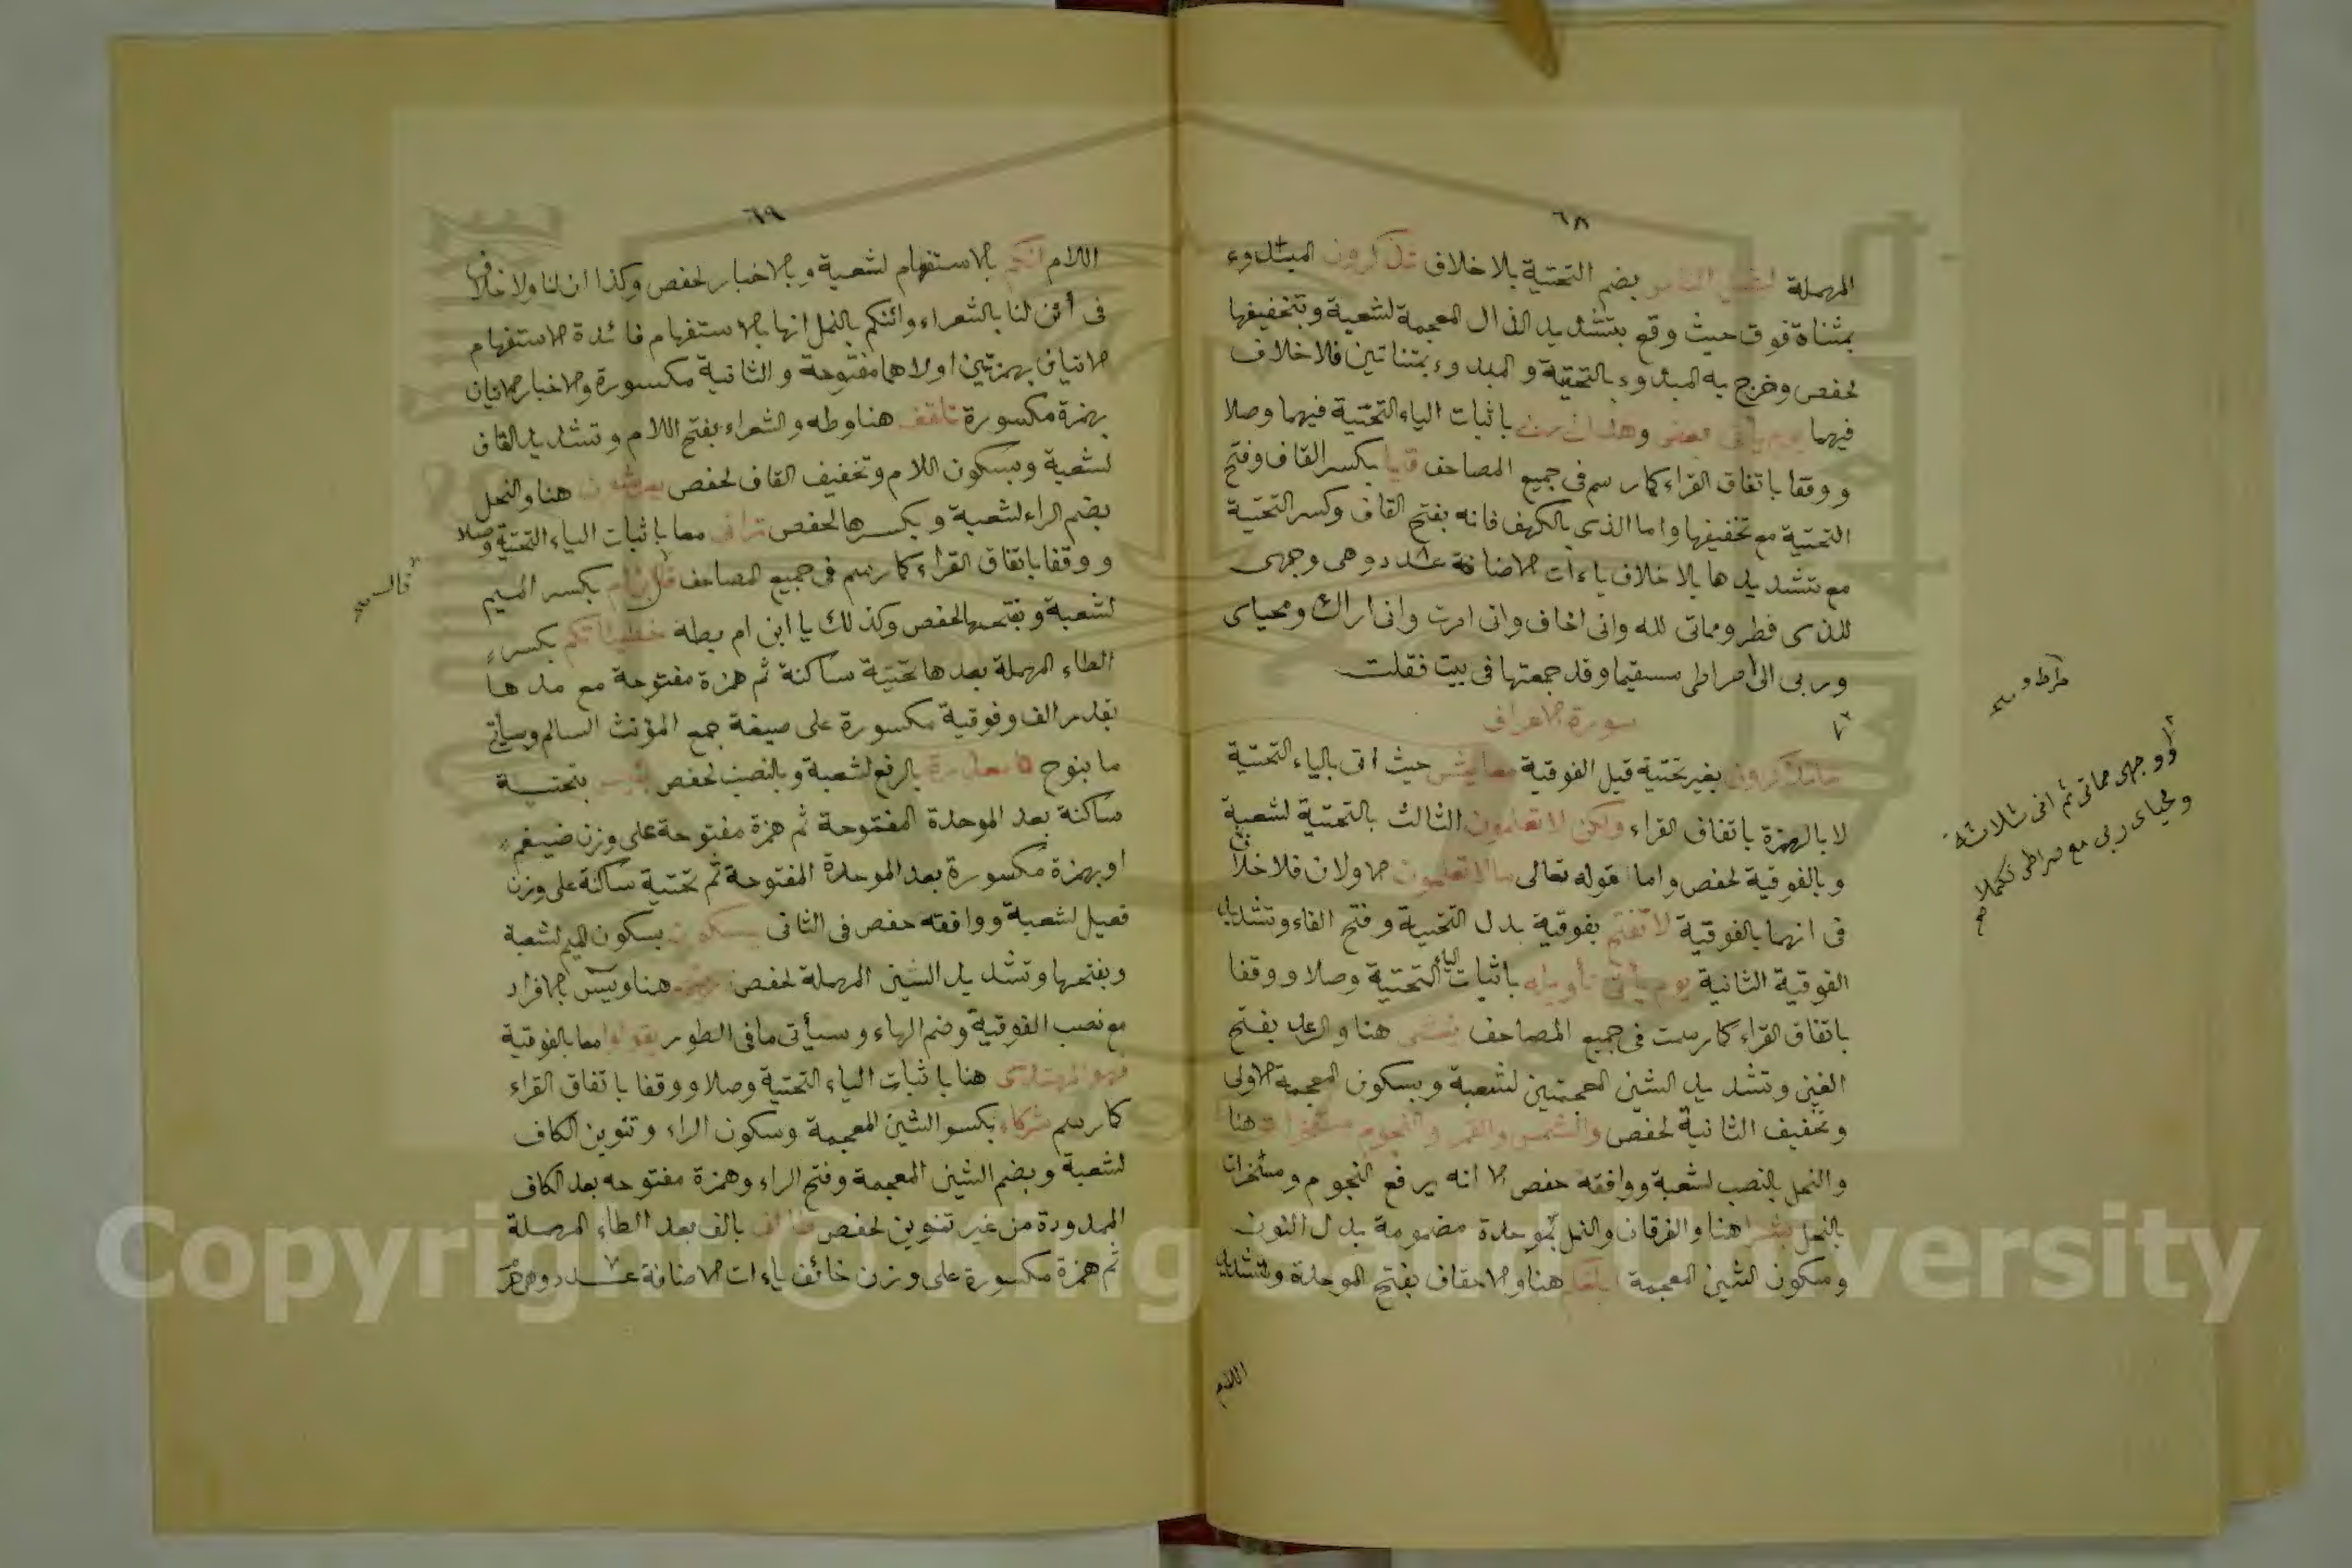 ٦٨
المهملة ليضل الناس بضم التحتية بلا خلاف تذكرون المبتدوء
بمثناة فوق حيث وقع بتشديد الذال المعجمة لشعبة وبتخفيفها
لحفص وخرج به المبدوء بالتحتية والمبدوء بمثناتين فلا خلاف
فيهما يوم يأتى بعض وهدان باثبات الياء التحتية فيهما وصلا
ووقفا باتفاق القراء كما رسم فى جميع المصاحف قيما بكسر القاف وفتح
التحتية مع تخفيفها واما الذى بالكهف فانه بفتح القاف وكسر التحتية
مع تشديدها بلا خلاف ياءات الاضافة عدد وهى وجهى
للذى فطر ومماتى لله وانى اخاف وانى امرت وانى اراك ومحياى
وربى الى صراطى مستقيما وقد جمعتها فى بيت فقلت
سورة الاعراف
ما تذكرون بغير تحتية قبل الفوقية معايش حيث اتى بالياء التحتية
لا بالهمزة باتفاق القراء ولكن لا تعلمون الثالث بالتحتية لشعبة
وبالفوقية لحفص واما قوله تعالى مالا تعلمون الاولان فلا خلاف
فى انهما بالفوقية لا تفتح بفوقية بدل التحتية وفتح الفاء وتشديد
الفوقية الثانية يوم يأتى تأويله باثبات الياء التحتية وصلا ووقفا
باتفاق القراء كما رسمت فى جميع المصاحف يغشى هنا والرعد بفتح
الغين وتشديد الشين المعجمتين لشعبة وبسكون المعجمة الاولى
وتخفيف الثانية لحفص والشمس والقمر والنجوم مسخرات هنا
والنحل بالنصب لشعبة ووافقه حفص الا انه يرفع النجوم ومسخرات
بالنحل بشرا هنا والفرقان والنمل بموحدة مضمومة بدل النون
وسكون الشين المعجمة ابلغكم هنا والاحقاف بفتح الموحدة وتشديد
اللام
وجهى مماتى ثم انى ثلاثة
ومحياى ربى مع صراطى تكملا
٦٩
اللام انكم بالاستفهام لشعبة وبالاخبار لحفص وكذا ان لنا ولا خلاف
فى أئن لنا بالشعراء وائنكم بالنمل انها بالاستفهام فائدة الاستفهام
الاتيان بهمزتين اولاهما مفتوحة والثانية مكسورة والاخبار الاتيان
بهمزة مكسورة تلقف هنا وطه والشعراء بفتح اللام وتشديد القاف
لشعبة وبسكون اللام وتخفيف القاف لحفص يعرشون هنا والنحل
بضم الراء لشعبة وبكسرها لحفص ترانى معا باثبات الياء التحتية وصلا
ووقفا باتفاق القراء كما رسم فى جميع المصاحف قال ابن ام بكسر الميم
لشعبة وبفتحها لحفص وكذلك يا ابن ام بطه خطيئاتكم بكسر
الطاء المهملة بعدها تحتية ساكنة ثم همزة مفتوحة مع مدها
بقدر الف وفوقية مكسورة على صيغة جمع المؤنث السالم وسيأتى
ما بنوح معذرة بالرفع لشعبة وبالنصب لحفص بئيس بتحتية
ساكنة بعد الموحدة المفتوحة ثم همزة مفتوحة على وزن ضيغم
او بهمزة مكسورة بعد الموحدة المفتوحة ثم تحتية ساكنة على وزن
فعيل لشعبة ووافقه حفص فى الثانى يمسكون بسكون الميم لشعبة
وبفتحها وتشديد السين المهملة لحفص ذريتهم هنا ويس بالافراد
مع نصب الفوقية وضم الهاء وسيأتى ما فى الطور يقولوا معا بالفوقية
فهو المهتدى هنا باثبات الياء التحتية وصلا ووقفا باتفاق القراء
كما رسم شركاء بكسر الشين المعجمة وسكون الراء وتنوين الكاف
لشعبة وبضم الشين المعجمة وفتح الراء وهمزة مفتوحه بعد الكاف
الممدودة من غير تنوين لحفص طائف بالف بعد الطاء المهملة
ثم همزة مكسورة على وزن خائف ياءات الاضافة عدد وهى
Copyright © King Saud University